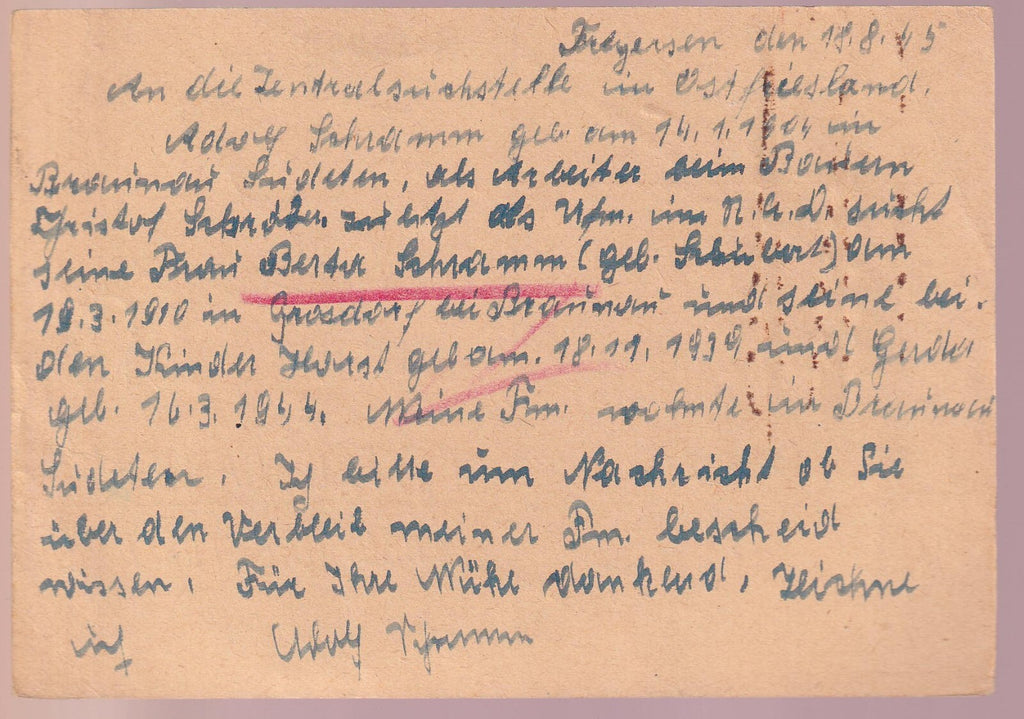 Freyersen den 18.8.45
An die Zentralsuchstelle in Ostfriesland.
Adolf Schramm geb. am 14.1.1904 in
Braunau Sudeten, als Arbeiter beim Bauern
Christof Schröder. zuletzt als Ufm. im R.A.D. sucht
seine Frau Berta Schramm (geb. Schubert) am
19.3.1910 in Grosdorf bei Braunau und seine bei-
den Kinder Horst geb am. 18.11.1939 und Gerda
geb. 16.3.1944. Meine Fm. wohnte in Braunau
Sudeten. Ich bitte um Nachricht ob Sie
über den Verbleib meiner Fm. bescheid
wissen. Für Ihre Mühe dankend, zeichne
ich Adolf Schramm